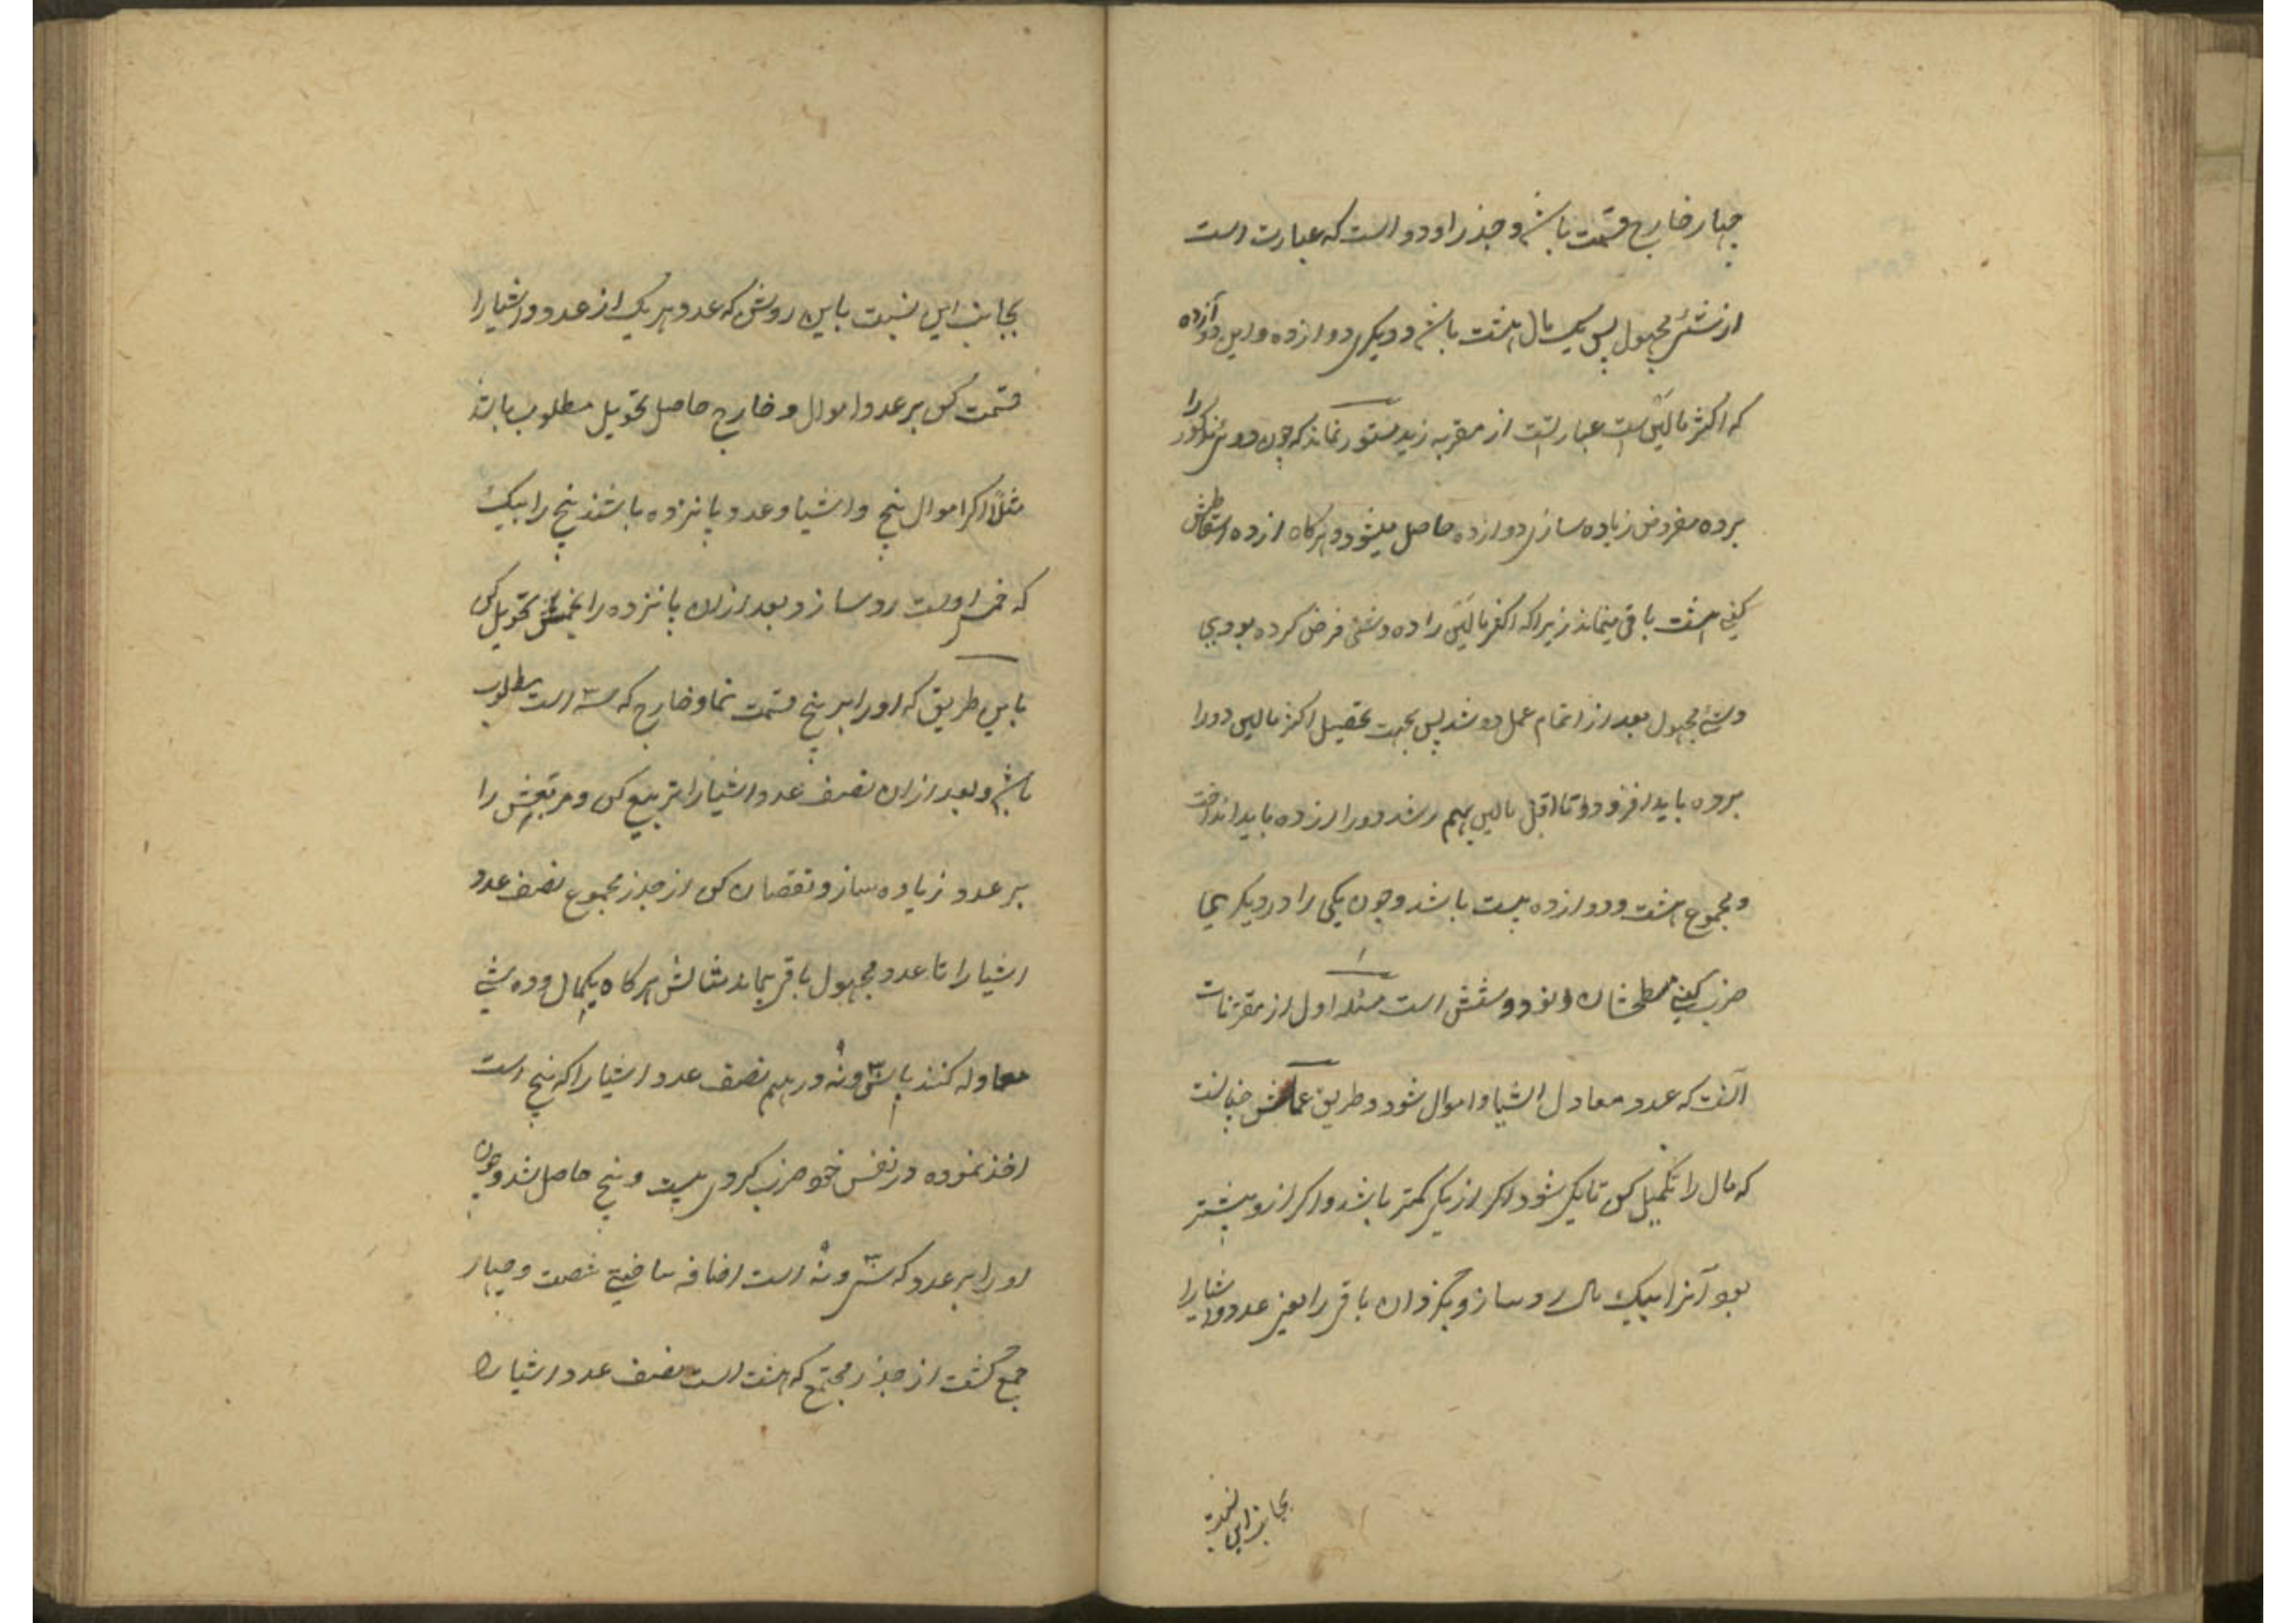 چهار خارج قسمت باشد و جذر او دو است که عبارت است
از شئ مجهول پس یک مال هشت باشد و دیگری دوازده و این دوازده
که اکثر مالین است عبارتست از مقر به زید مستور نماند که چون دو شئ مذکور را
بر ده مفروض زیاده سازی دوازده حاصل میشود و هرگاه از ده اسقاطش
کنی هشت باقی میماند زیرا که اکثر مالین را ده و شئ فرض کرده بودی
و شئ مجهول بعد از اتمام عمل دو شد پس بجهت تحصیل اکثر مالین دو را
بر ده باید افزود و تا اقل مالین بهم رسد دو را از ده باید انداخت
و مجموع هشت و دوازده بیست باشد و چون یکی را در دیگری
ضرب کنی مسطحشان نود و شش است مسئله اول از مقترنات
آنست که عدد معادل اشیا و اموال شود و طریق عملش چنانست
که مال را تکمیل کن تا یکی شود اگر از یکی کمتر باشد و اگر ازو بیشتر
بود آنرا بیک مال رد ساز و بگردان باقی را یعنی عدد و اشیا را
بجانب این نسبت
بجانب این نسبت باین روش که عدد هر یک از عدد و اشیا را
قسمت کن بر عدد اموال و خارج حاصل تحویل مطلوب باشد
مثلاً اگر اموال پنج و اشیا و عدد پانزده باشند پنج را بیک
که خمس اوست رد ساز و بعد ازان پانزده را بخمسش تحویل کن
باین طریق که او را بر پنج قسمت نما و خارج که سه ۳ است مطلوب
باشد و بعد ازان نصف عدد اشیا را تربیع کن و مربعش را
بر عدد زیاده ساز و نقصان کن از جذر مجموع نصف عدد
اشیا را تا عدد مجهول باقی بماند مثالش هرگاه یکمال و ده شئ
معادله کنند با سی و نه ۳۹ درهم نصف عدد اشیا را که پنج است
اخذ نموده در نفس خود ضرب کردی بیست و پنج حاصل شد و چون
او را بر عدد که سی و نه ۳۹ است اضافه ساختی شصت و چهار
جمع گشت از جذر مجتمع که هشت است نصف عدد اشیا را